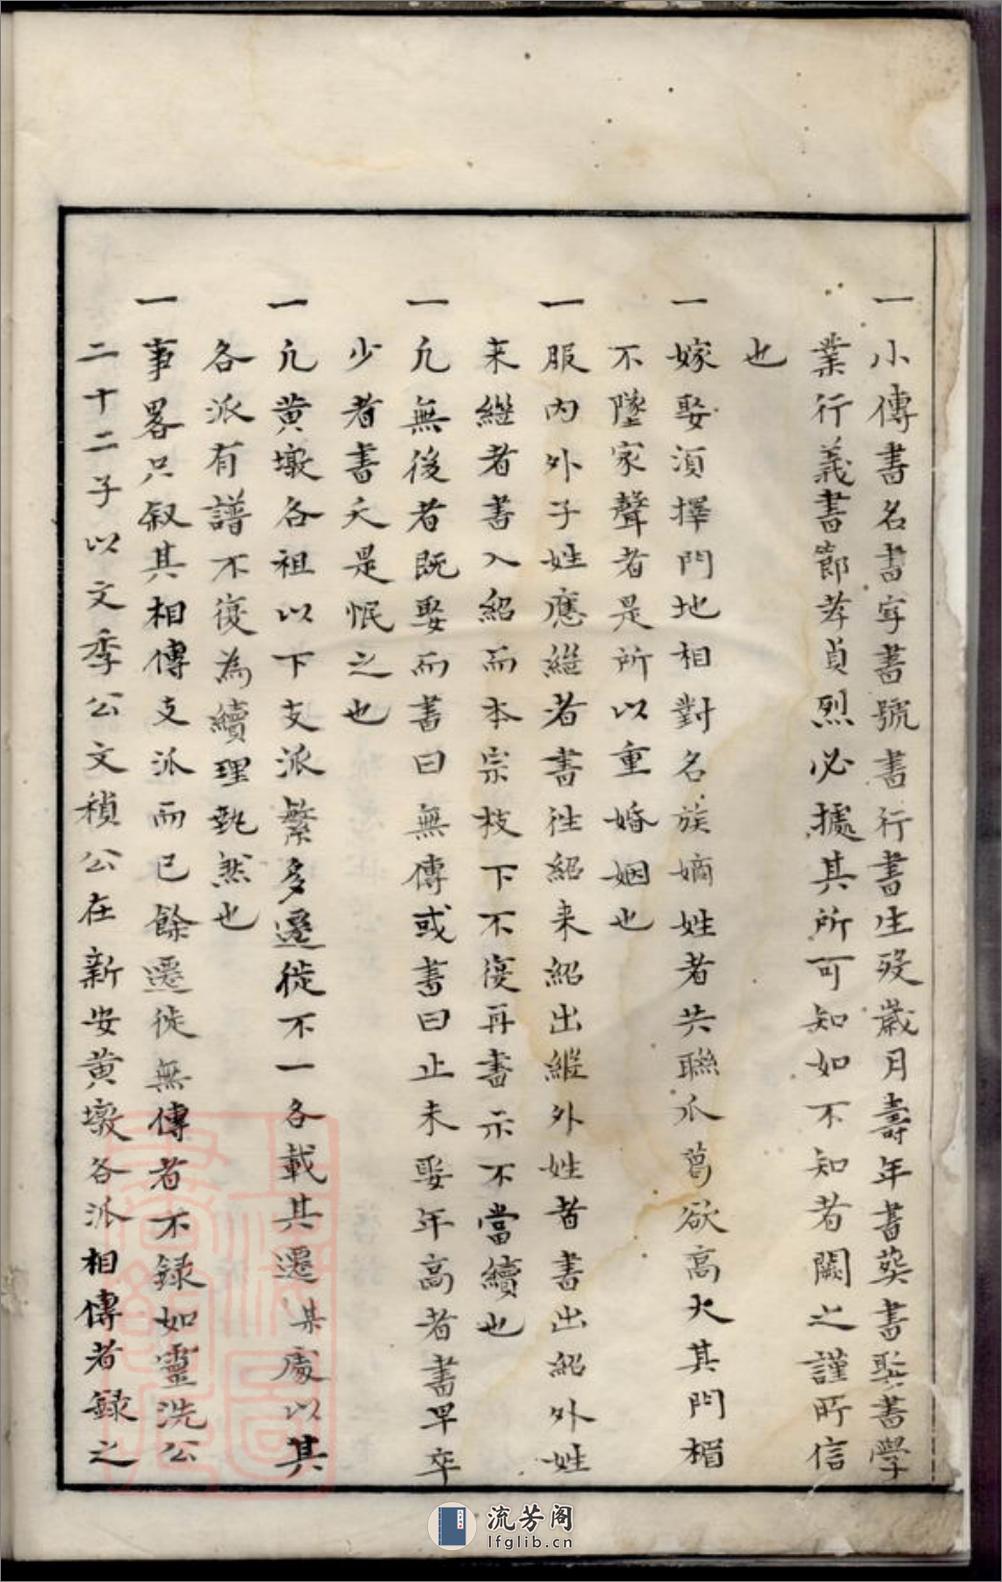 一小傳書名書字書號書行書生歿歲月壽年書葵書娶書學
業行義書節孝貞烈必據其所可知如不知者闕之謹所信
也
一嫁娶須擇門地相對名族嫡姓者共聯瓜葛欲高大其門楣
不墜家聲者是所以重婚姻也
一服內外子姓應繼者書徃紹来紹出繼外姓者書出紹外姓
来繼者書入紹而本宗枝下不復再書示不當續也
一凢無後者既娶而書曰無傳或書曰止未娶年高者書早卒
少者書夭是恨之也
一凢黄墩各祖以下支派繁多遷徙不一各載其遷某處以其
各派有譜不復為續理埶然也
一事畧只叙其相傳支派而已餘遷徙無傳者不録如靈洗公
二十二子以文季公文稹公在新安黄墩各派相傳者録之
流芳阁
lfglib.cn